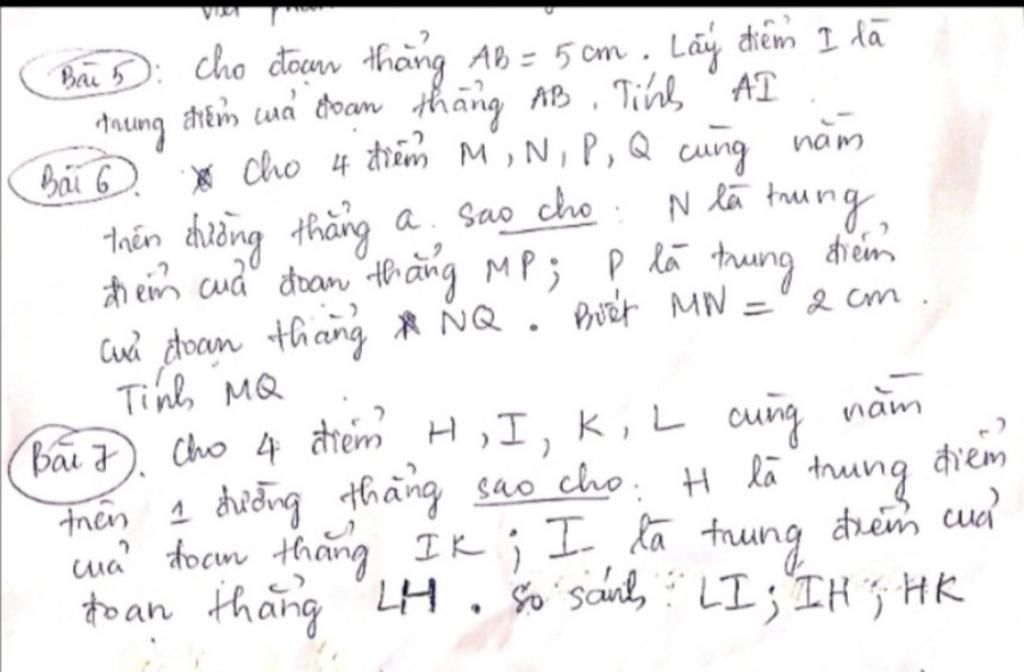 Bài 5: Cho đoạn thẳng AB = 5 cm. Lấy điểm I là
trung điểm của đoạn thẳng AB. Tính AI
Bài 6. Cho 4 điểm M, N, P, Q cùng nằm
trên đường thẳng a. sao cho: N là trung
điểm của đoạn thẳng MP; P là trung điểm
của đoạn thẳng NQ. Biết MN = 2 cm.
Tính MQ
Bài 7. Cho 4 điểm H, I, K, L cùng nằm
trên 1 đường thẳng sao cho: H là trung điểm
của đoạn thẳng IK; I là trung điểm của
đoạn thẳng LH. So sánh: LI; IH; HK